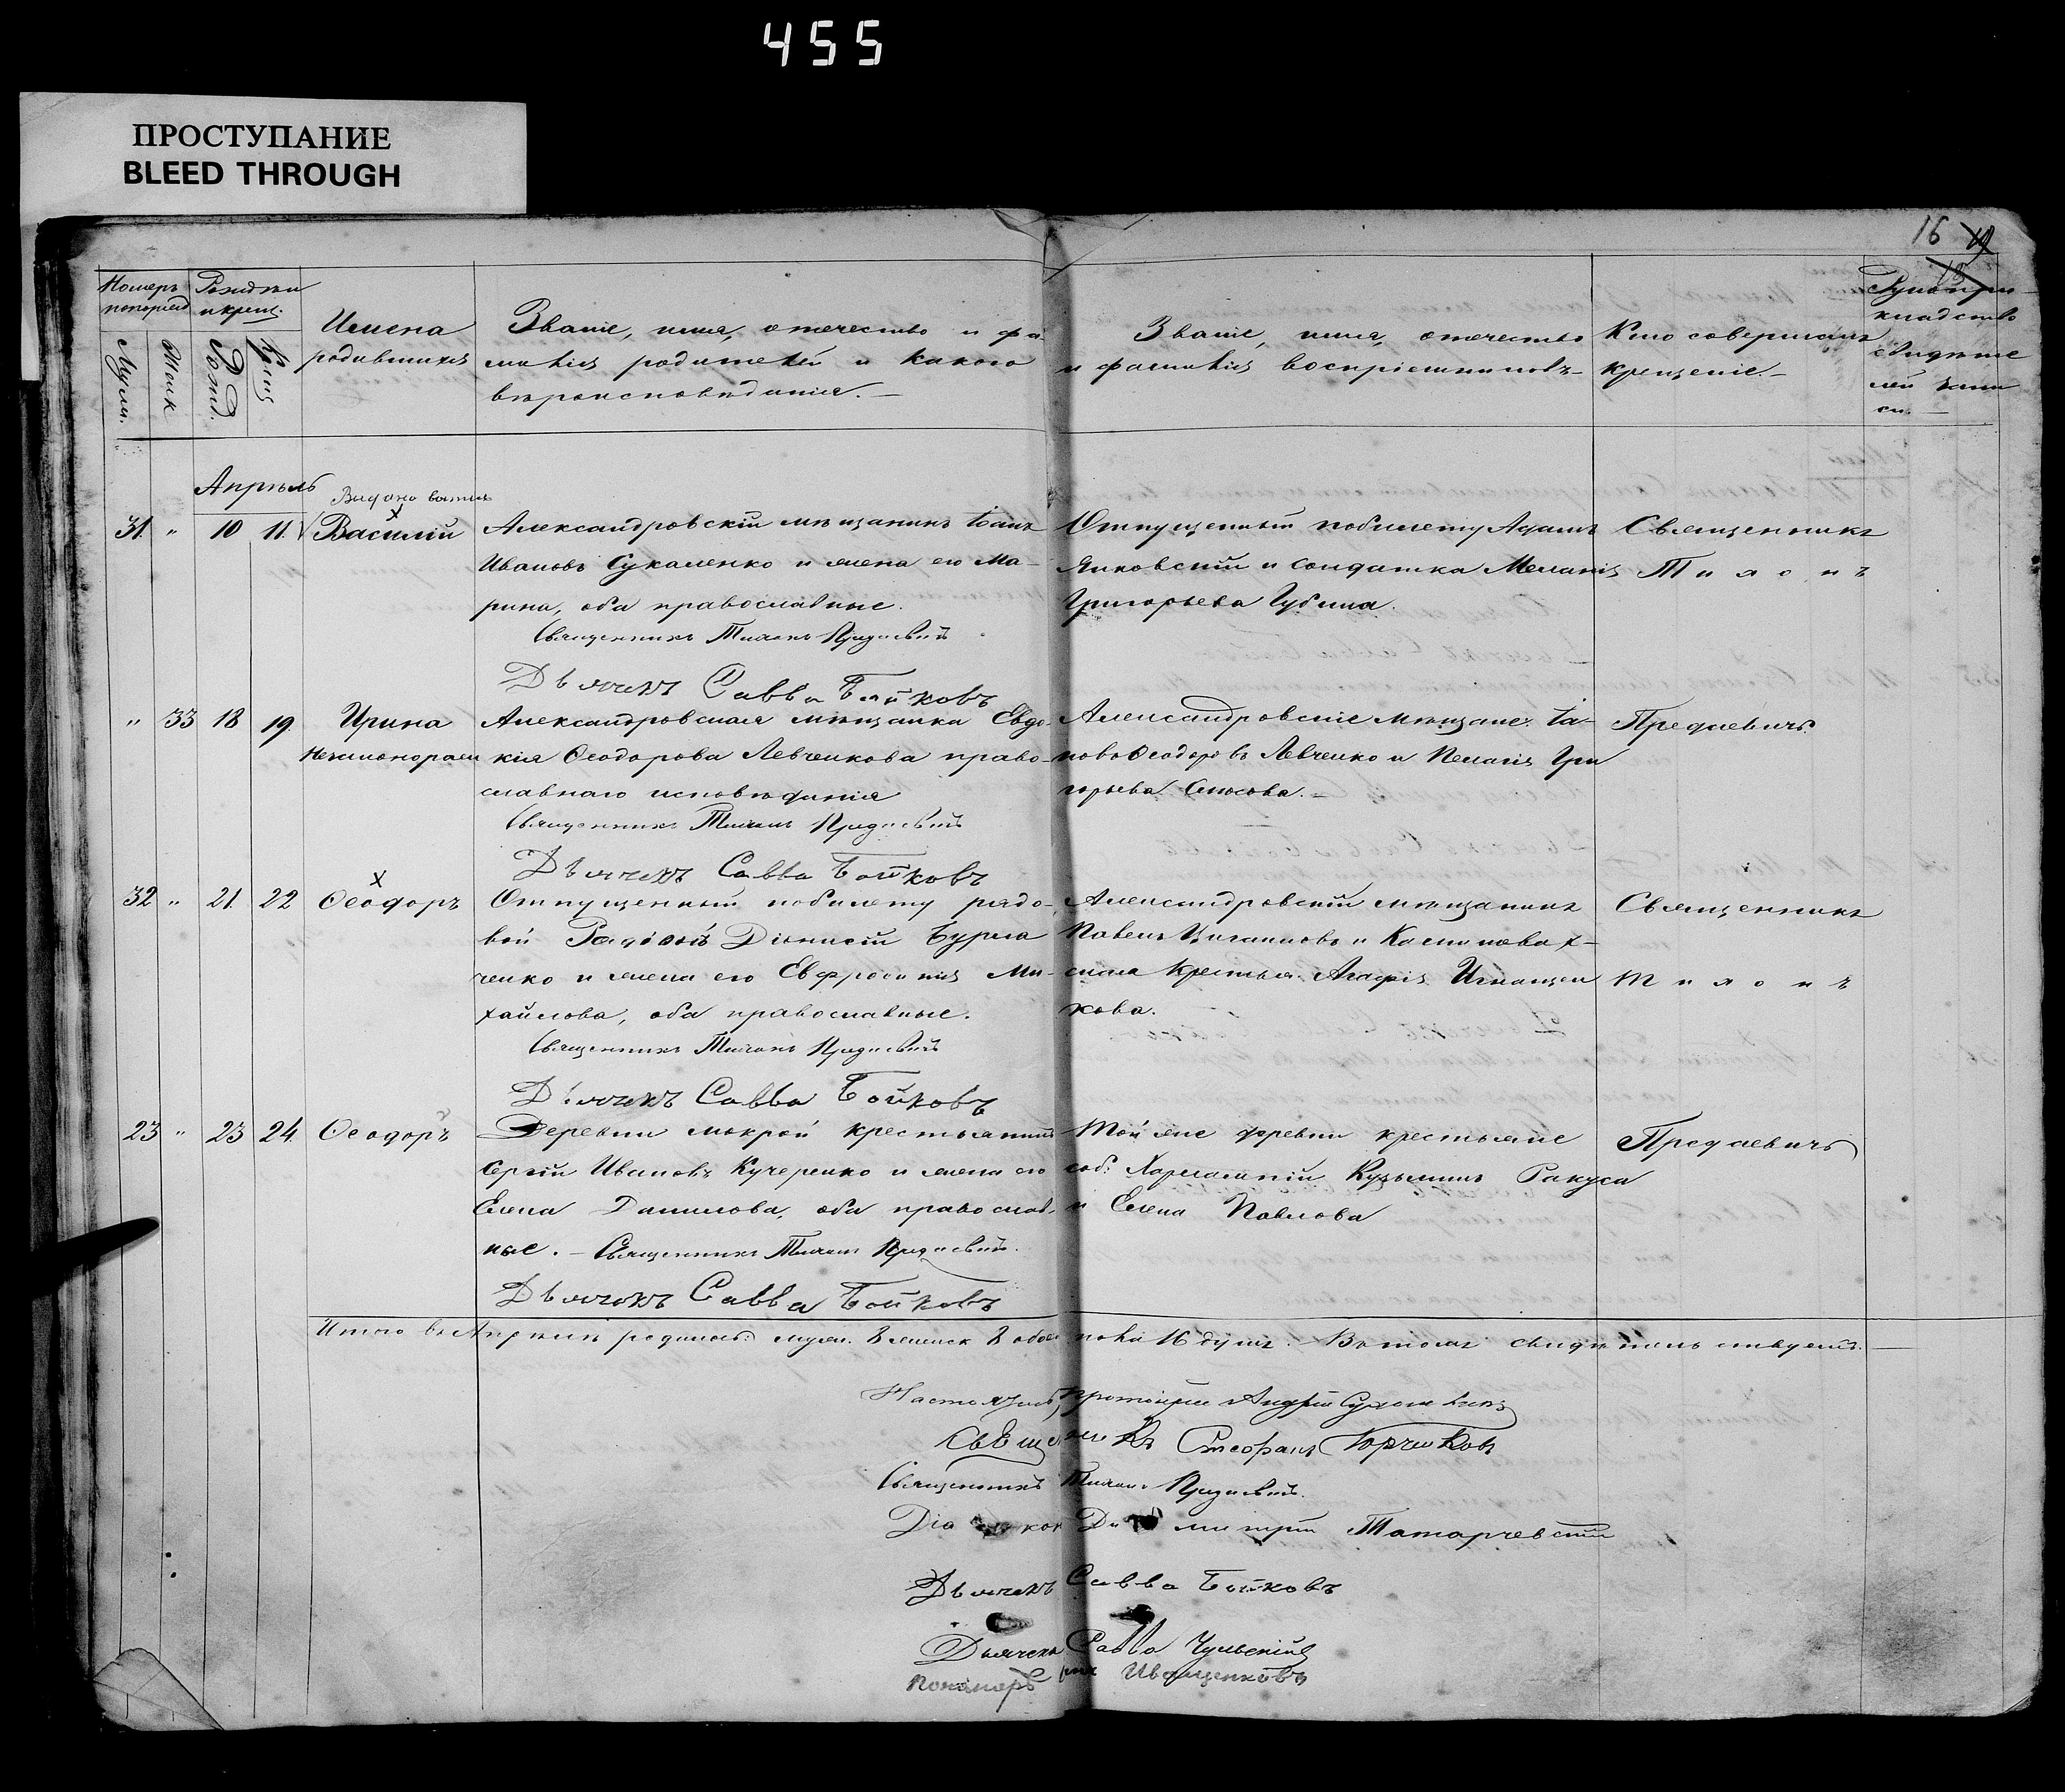 455
ПРОСТУПАНИЕ
BLEED THROUGH
16
Номеръ
Имена
родившихся
Званіе, имя, отечество и фа-
милія родителей и какого
вѣроисповѣданія.—
Званіе, имя, отечество
и фамилія воспріемниковъ—
Кто совершалъ
крещеніе.—
Рукопри-
кладство
свидѣте
лей запи
си.—
Апрѣль
31. " 10 11. Василій
Александровскій мѣщанинъ Іоаннъ
Ивановъ Сукаленко и жена его Ма-
рина, оба православные.
Священникъ Тихонъ
Дьячекъ Савва Бойковъ
Отпущенный по билету Адамъ
Янковскій и солдатка Меланія
Григорьева Губина.
Священникъ
Тихонъ
" 33 18 19. Ирина
Незаконорожд
Александровская мѣщанка Евдо-
кія Ѳеодорова Левченкова право-
славнаго исповѣданія
Священникъ Тихонъ
Дьячекъ Савва Бойковъ
Александровскіе мѣщане: Іа-
ковъ Ѳеодоровъ Левченко и Пелагія Гри
горьева
Предаевичъ
32 " 21. 22 Ѳеодоръ
Отпущенный по билету рядо-
вой Діонисій Бурла
ченко и жена его Евфросинія Ми-
хайлова, оба православные.
Священникъ Тихонъ
Дьячекъ Савва Бойковъ
Александровскій мѣщанинъ
Павелъ
Агафія Игнащен
кова.
Священникъ
Тихонъ
23 " 23 24. Ѳеодоръ
Деревни мокрой крестьянинъ
Сергій Ивановъ Кучеренко и жена его
Елена Данилова, оба православ-
ные.— Священникъ Тихонъ
Дьячекъ Савва Бойковъ
Той же деревни крестьяне
соб: Харлампій Кузьминъ Ракуса
и Елена Павлова
Предаевичъ
Итого въ Апрѣлѣ родилось: муж. 8 женск 8 обоего пола 16 душъ. Въ томъ свидѣтельствуемъ.—
Настоятель, протоіерей Андрей
Священникъ Стефанъ
Священникъ Тихонъ
Діаконъ Димитрій Татарчевскій
Дьячекъ Савва Бойковъ
Дьячекъ
Пономарь Иващенковъ